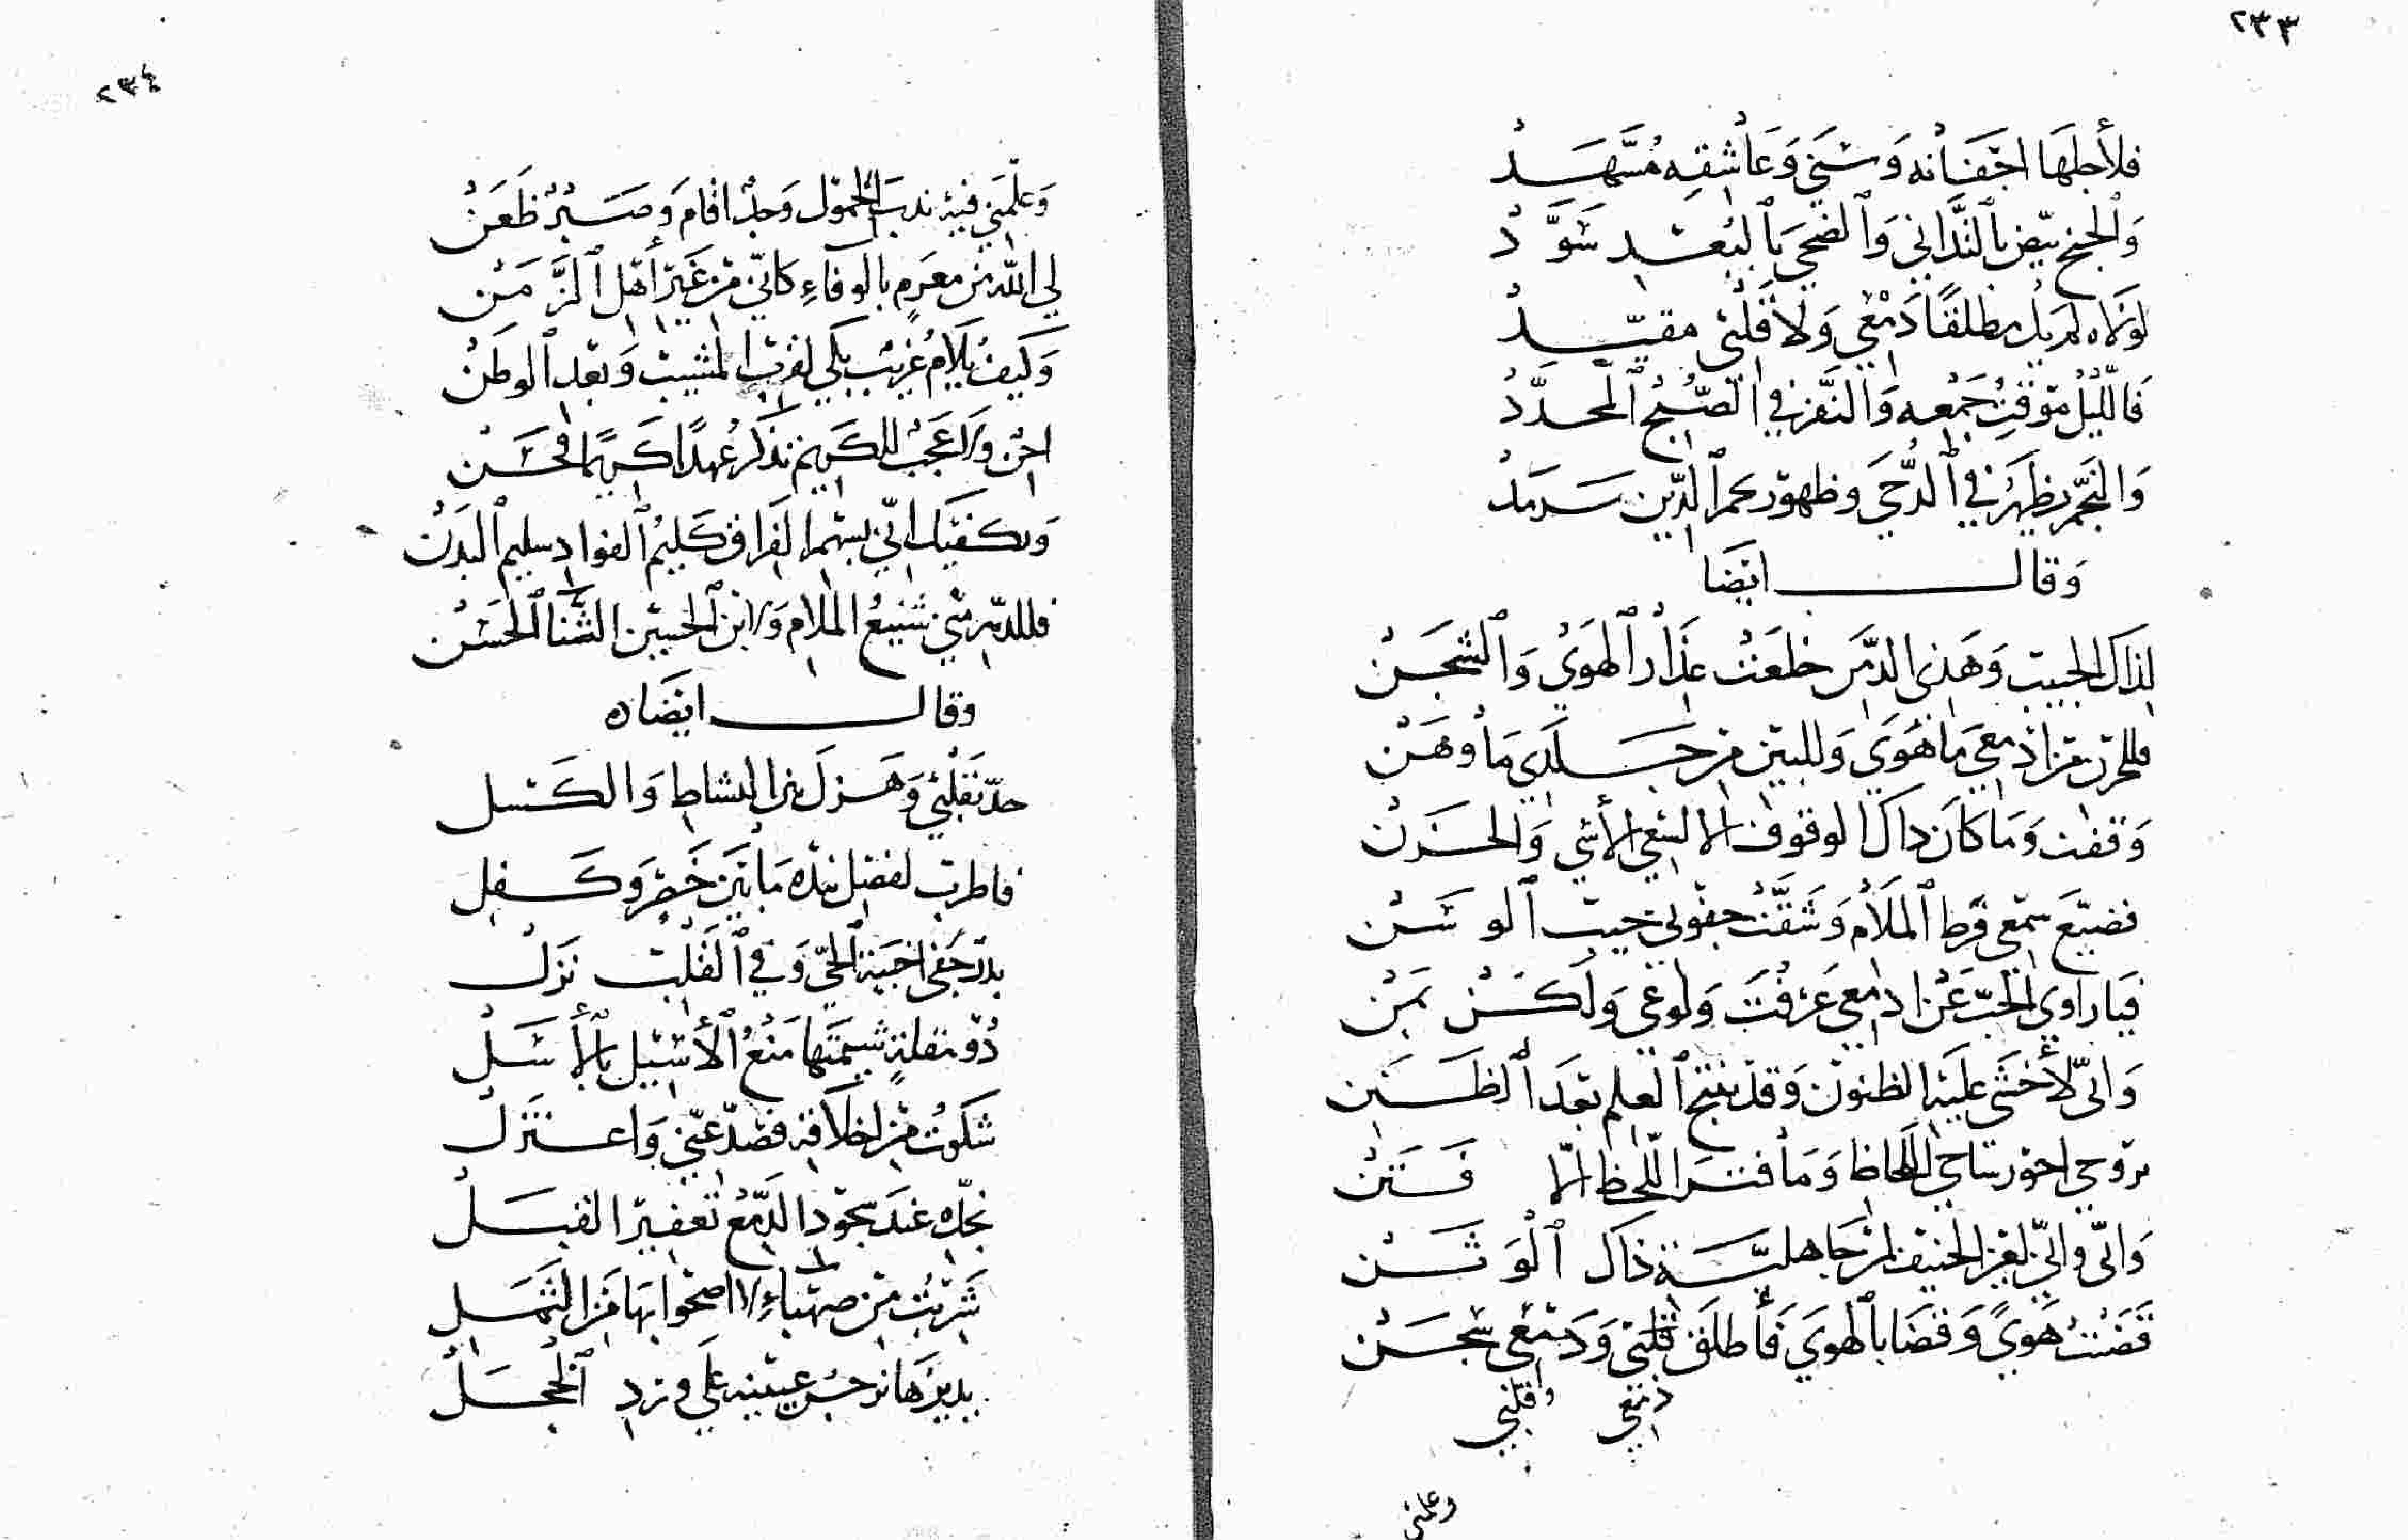 ٢٣٣
فلأجلها اجفانه وسني وعاشقه مسهد
والجنح بيض بالتداني والضحي بالبعد سود
لولاه لم يك مطلقا دمعي ولا قلبي مقيد
فالليل موقف جمعه والنفر في الصبح المحدد
والنجم يظهر في الدجي وظهور نجم الدين سرمد
وقال ايضا
لذاك الحبيب وهذي الدمن خلعت عذار الهوي والشجن
فللحزن من ادمعي ما هوي وللبين من جلدي ما وهن
وقفت وما كان ذاك الوقوف الا لسقي الأسي والحزن
فضيع سمعي قرط الملام وشقت جفوني جيب الوسن
فيا راوي الحب عن ادمعي عرفت ولوعي ولكن بمن
واني لأخشي عليه الظنون وقد ينتج العلم بعد الظن
بروحي احور ساجي اللحاظ وما فتر اللحظ الا فتن
واني واني لغير الحنيف لمن جاهلية ذاك الوثن
قضيت هوي وقضا بالهوي فأطلق قلبي ودمعي سجن
دمعي وقلبي
وعلمني
٢٣٤
وعلمني فيه ندب الحمول وجد اقام وصبر ظعن
لي الله من مغرم بالوفاء كاني من غير أهل الزمن
وكيف يلام غريب بكي لقرب المشيب وبعد الوطن
احن ولا عجب للكريم تذكر عهدا كريما فحن
ويكفيك اني بسهم الفراق كليم الفواد سليم البدن
فللدهر مني شنيع الملام ولابن الحسين الثنا الحسن
وقال ايضا ه
جد بقلبي وهزل بين النشاط والكسل
فاطرب لفصل بنده ما بين خصر وكفل
بدر جفي اخبية الحي وفي القلب نزل
ذو مقلة شيمتها منع الأسيل بالأسل
شكوت من اخلاقه فصد عني واعتزل
بخده عند سجود الدمع تعفير القبل
شربت من صهباء لا اصحوا بها من الثمل
يديرها نرجس عينيه علي ورد الخجل